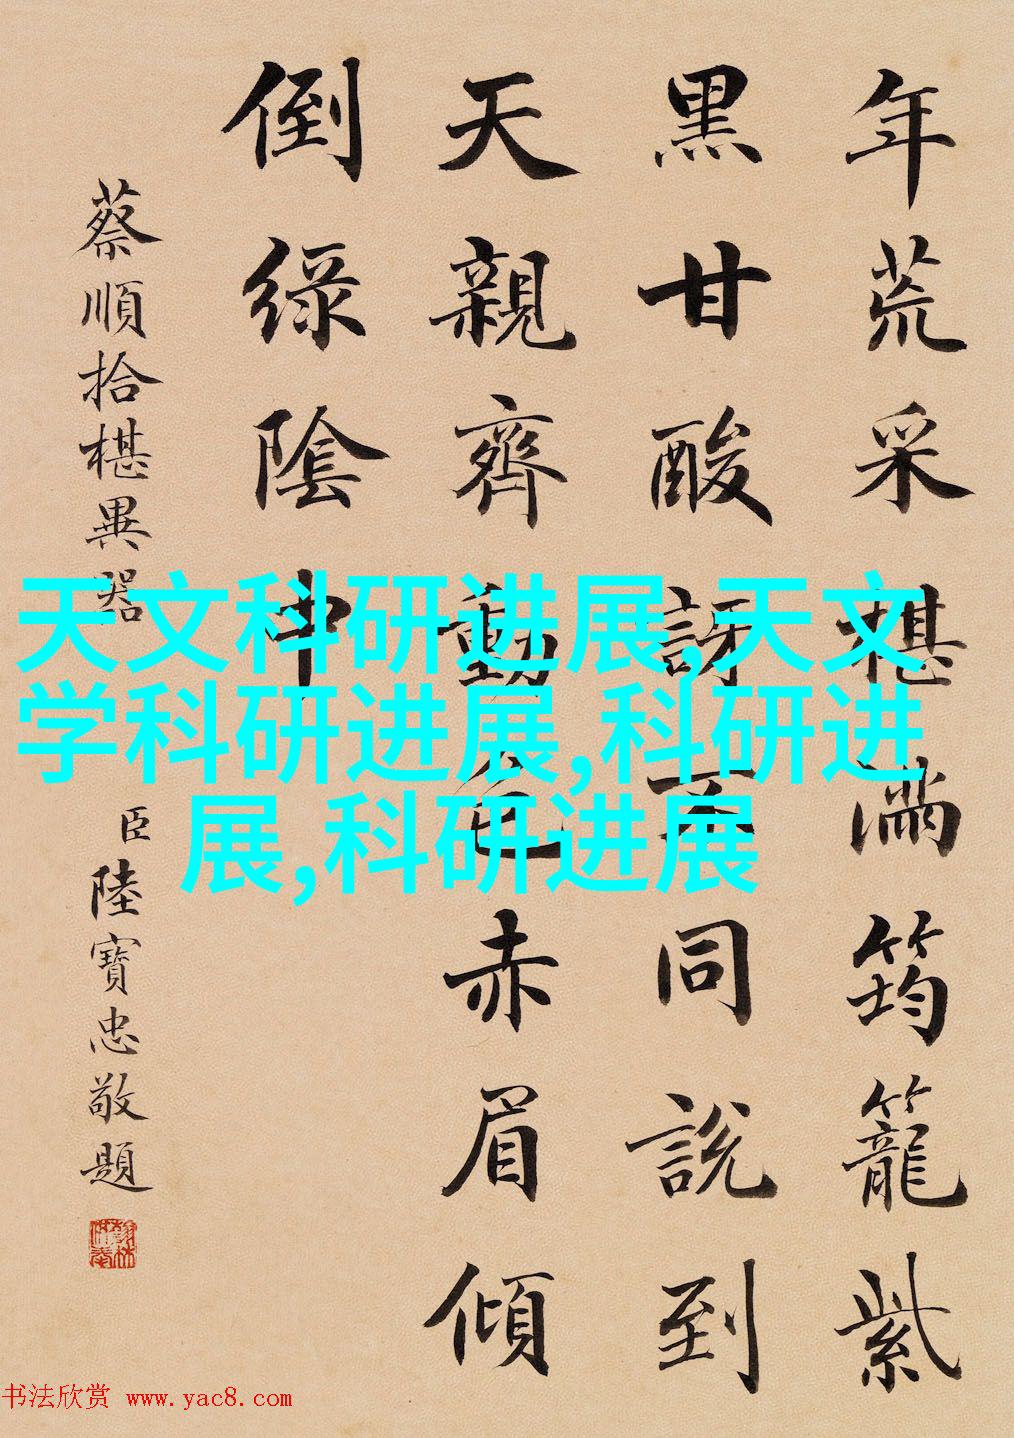 年荒采椹滿筠籠紫
黑甘酸訝不同說到
天親齊動色赤眉傾
倒綠陰中
蔡順拾椹異器
臣陸寶忠敬題
天文科研进展,天文
学科研进展,科研进
展,科研进展
书法欣赏 www.yac8.com